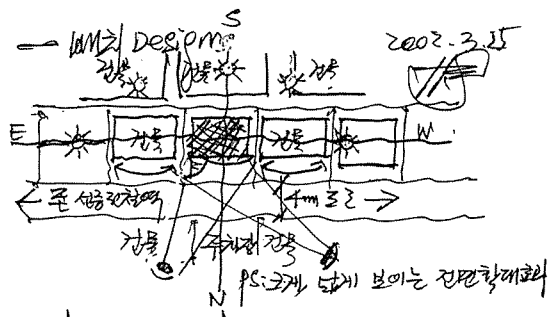 배치 Design
S
2002. 3. 25
건물 건물 건물
E 건물 건물 W
4m 도로
건물 주차장 건물
N
PS: 크게, 넓게 보이는 전면확대효과